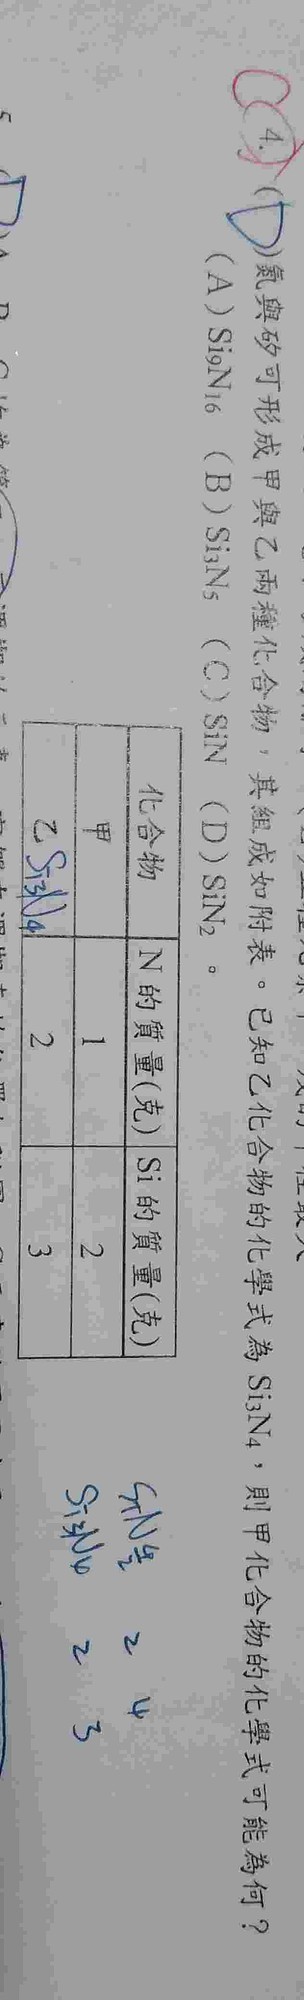 4. (D)氮與矽可形成甲與乙兩種化合物，其組成如附表。已知乙化合物的化學式為Si₃N₄，則甲化合物的化學式可能為何？
(A)Si₉N₁₆ (B)Si₃N₅ (C)SiN (D)SiN₂。
化合物 N的質量(克) Si的質量(克)
甲 1 2
乙 Si₃N₄ 2 3
2 4
Si₃N₄ 2 3